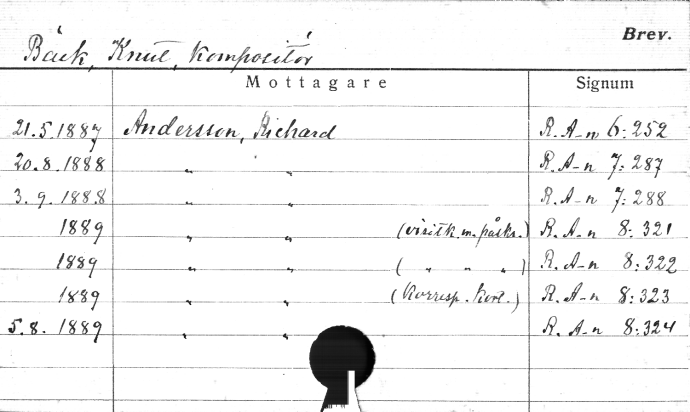 Brev.
Bäck, Knut, kompositör
Mottagare Signum
21.5.1887 Andersson, Richard R. A-n 6:252
20.8.1888 " " R. A-n 7:287
3.9.1888 " " R. A-n 7:288
1889 " " (visitk.m.påskr.) R. A-n 8:321
1889 " " ( " " " ) R. A-n 8:322
1889 " " (Korresp.kort.) R. A-n 8:323
5.8.1889 " " R. A-n 8:324